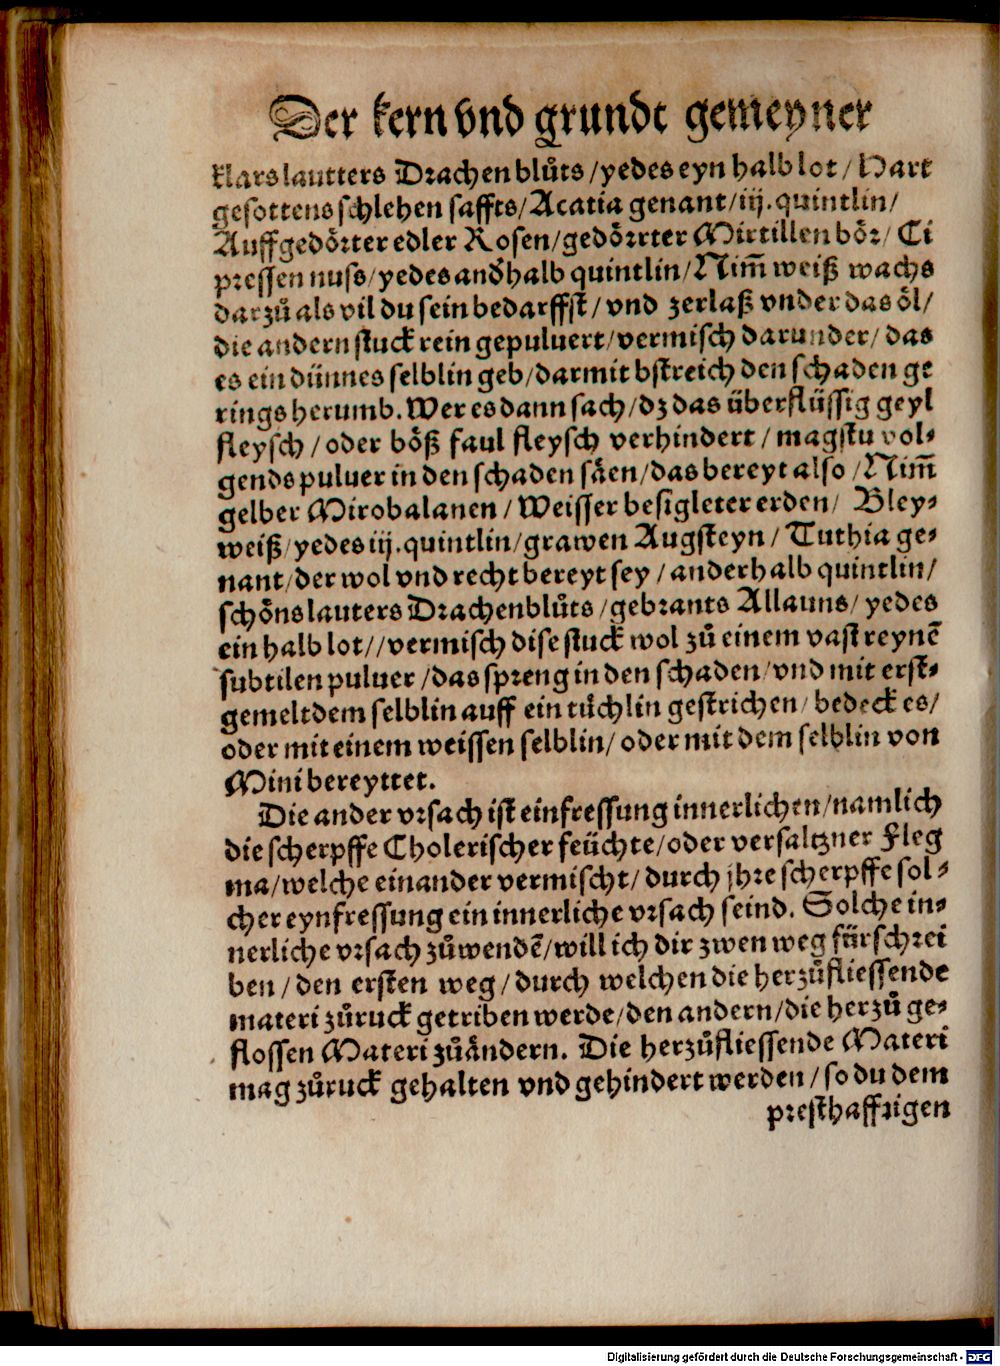 Der kern vnd grundt gemeyner
klars lautters Drachen blůts / yedes eyn halb lot / Hart
gesottens schlehen saffts / Acatia genant / iij. quintlin /
Auffgedörter edler Rosen / gedörrter Mirtillen bör / Ci
pressen nuss / yedes andhalb quintlin / Nim̄ weiß wachs
darzů als vil du sein bedarffst / vnd zerlaß vnder das öl /
die andern stuck rein gepuluert / vermisch darunder / das
es ein dünnes selblin geb / darmit bstreich den schaden ge
rings herumb. Wer es dann sach / dz das überflüssig geyl
fleysch / oder böß faul fleysch verhindert / magstu vol⸗
gends puluer in den schaden säen / das bereyt also / Nim̄
gelber Mirobalanen / Weisser besigleter erden / Bley⸗
weiß / yedes iij. quintlin / grawen Augsteyn / Tuthia ge⸗
nant / der wol vnd recht bereyt sey / anderhalb quintlin /
schöns lauters Drachenblůts / gebrants Allauns / yedes
ein halb lot / / vermisch dise stuck wol zů einem vast reynē
subtilen puluer / das spreng in den schaden / vnd mit erst⸗
gemeltdem selblin auff ein tüchlin gestrichen / bedeck es /
oder mit einem weissen selblin / oder mit dem selblin von
Mini bereyttet.
Die ander vrsach ist einfressung innerlichen / namlich
die scherpffe Cholerischer feüchte / oder versaltzner Fleg
ma / welche einander vermischt / durch jhre scherpffe sol⸗
cher eynfressung ein innerliche vrsach seind. Solche in⸗
nerliche vrsach zůwendē / will ich dir zwen weg fürschrei
ben / den ersten weg / durch welchen die herzůfliessende
materi zůruck getriben werde / den andern / die herzů ge⸗
flossen Materi zůändern. Die herzůfliessende Materi
mag zůruck gehalten vnd gehindert werden / so du dem
presthafftigen
Digitalisierung gefördert durch die Deutsche Forschungsgemeinschaft - DFG